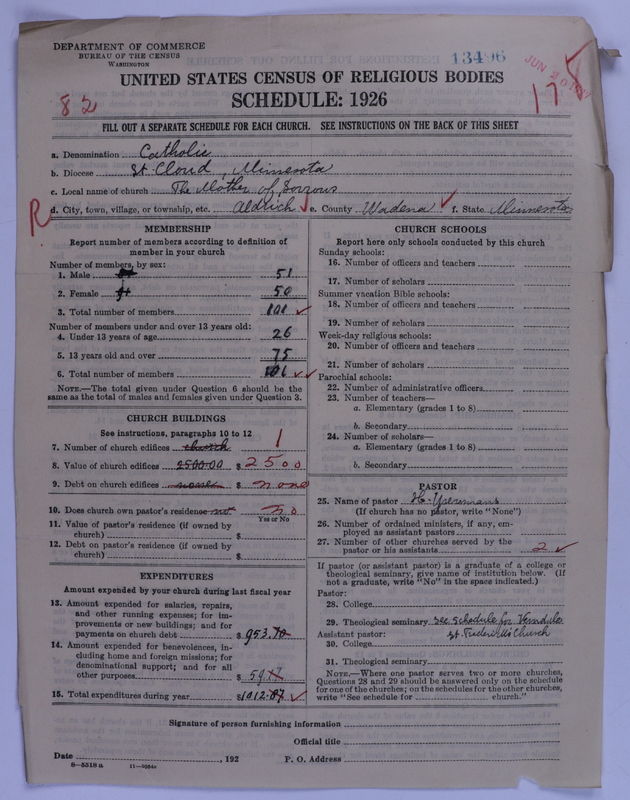 DEPARTMENT OF COMMERCE
BUREAU OF THE CENSUS
WASHINGTON
13496
82
17
UNITED STATES CENSUS OF RELIGIOUS BODIES
SCHEDULE: 1926
FILL OUT A SEPARATE SCHEDULE FOR EACH CHURCH. SEE INSTRUCTIONS ON THE BACK OF THIS SHEET
a. Denomination Catholic
b. Diocese St Cloud, Minnesota
c. Local name of church The Mother of Sorrows
R d. City, town, village, or township, etc. Aldrich e. County Wadena f. State Minnesota
MEMBERSHIP
Report number of members according to definition of
member in your church
Number of members, by sex:
1. Male 51
2. Female 50
3. Total number of members 101
Number of members under and over 13 years old:
4. Under 13 years of age 26
5. 13 years old and over 75
6. Total number of members 101
NOTE.—The total given under Question 6 should be the
same as the total of males and females given under Question 3.
CHURCH BUILDINGS
See instructions, paragraphs 10 to 12
7. Number of church edifices church 1
8. Value of church edifices 2500.00 $ 2500
9. Debt on church edifices $ none
10. Does church own pastor's residence not no
Yes or No
11. Value of pastor's residence (if owned by
church) $
12. Debt on pastor's residence (if owned by
church) $
EXPENDITURES
Amount expended by your church during last fiscal year
13. Amount expended for salaries, repairs,
and other running expenses; for im-
provements or new buildings; and for
payments on church debt $ 953.70
14. Amount expended for benevolences, in-
cluding home and foreign missions; for
denominational support; and for all
other purposes $ 59
15. Total expenditures during year $ 1012.87
CHURCH SCHOOLS
Report here only schools conducted by this church
Sunday schools:
16. Number of officers and teachers
17. Number of scholars
Summer vacation Bible schools:
18. Number of officers and teachers
19. Number of scholars
Week-day religious schools:
20. Number of officers and teachers
21. Number of scholars
Parochial schools:
22. Number of administrative officers
23. Number of teachers—
a. Elementary (grades 1 to 8)
b. Secondary
24. Number of scholars—
a. Elementary (grades 1 to 8)
b. Secondary
PASTOR
25. Name of pastor H. Ypermans
(If church has no pastor, write "None")
26. Number of ordained ministers, if any, em-
ployed as assistant pastors
27. Number of other churches served by the
pastor or his assistants 2
If pastor (or assistant pastor) is a graduate of a college or
theological seminary, give name of institution below. (If
not a graduate, write "No" in the space indicated.)
Pastor:
28. College
29. Theological seminary See Schedule for Verndale
Assistant pastor: St. Church
30. College
31. Theological seminary
NOTE.—Where one pastor serves two or more churches,
Questions 28 and 29 should be answered only on the schedule
for one of the churches; on the schedules for the other churches,
write "See schedule for church."
Signature of person furnishing information
Official title
Date , 192 P. O. Address
8—5518 a